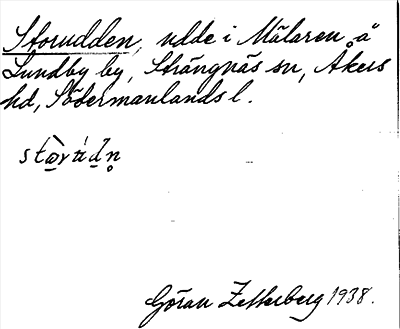 Storudden, udde i Mälaren å
Lundby by, Strängnäs sn, Åkers
hd, Södermanlands l.
Göran Zetterberg 1938.